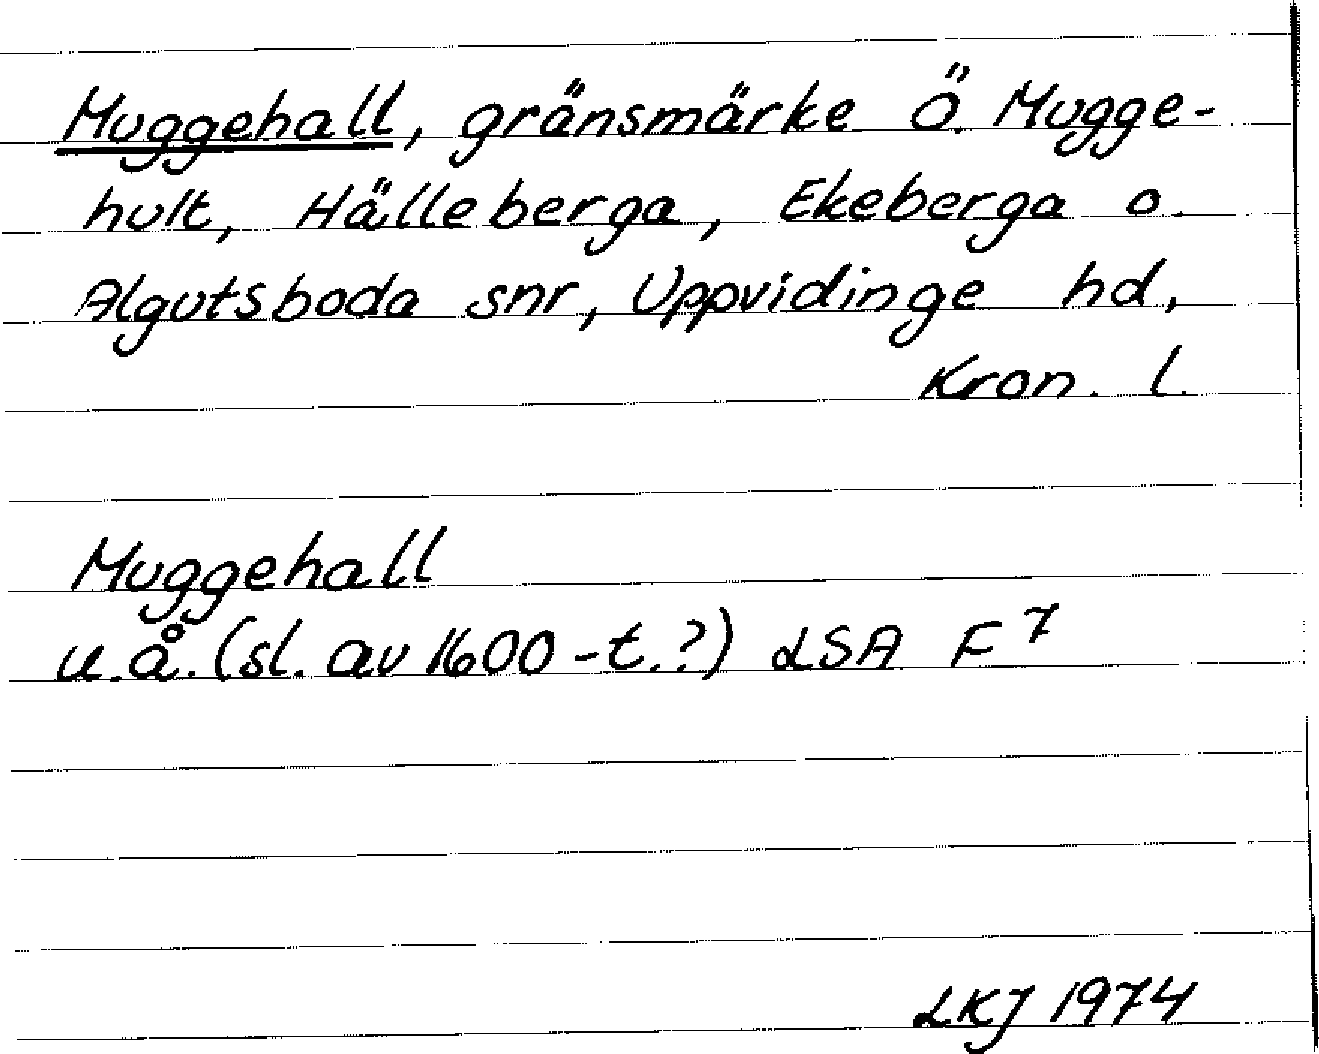 Muggehall, gränsmärke Ö. Mugge-
hult, Hälleberga, Ekeberga o.
Algutsboda snr, Uppvidinge hd,
Kron. l.
Muggehall
u.å. (sl. av 1600-t.?) LSA F 7
LKJ 1974